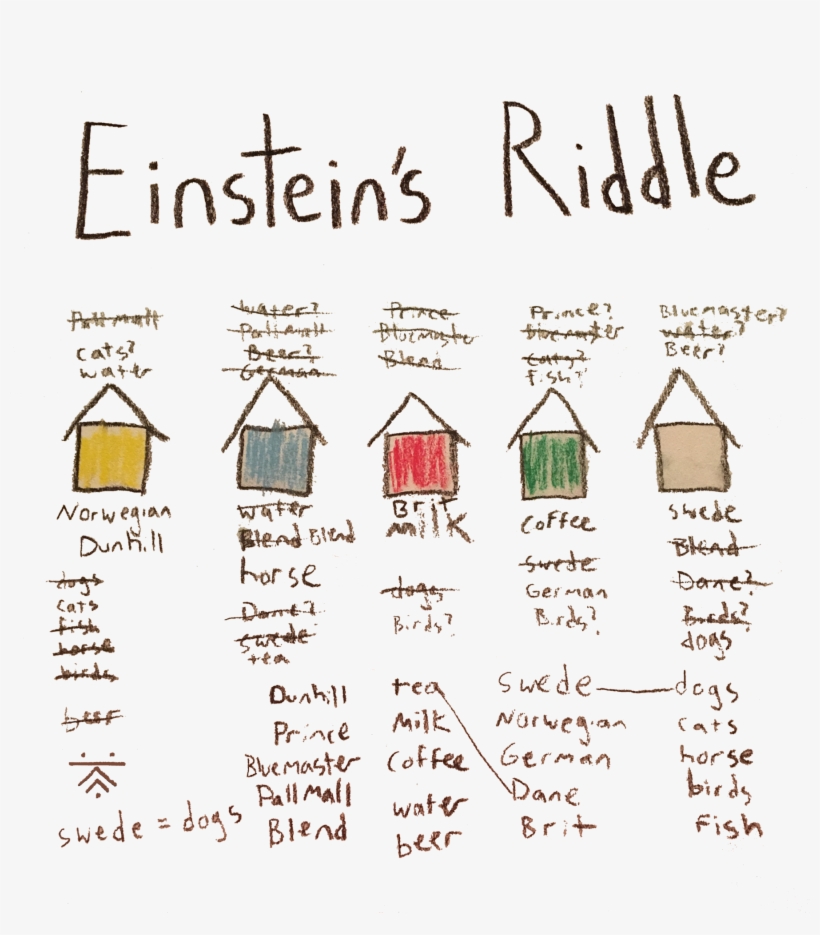 Einstein's Riddle
Pall mall
cats?
water
water?
Pall mall
Beer?
German
Prince
Bluemaster
Blend
Prince?
bluemaster
cats?
fish?
Bluemaster?
water?
Beer?
Norwegian
Dunhill
dogs
cats
fish
horse
birds
beer
water
Blend Blend
horse
Dane?
swede
tea
Brit
milk
dogs
Birds?
coffee
swede
German
Birds?
swede
Blend
Dane?
Birds?
dogs
swede = dogs
Dunhill
Prince
Bluemaster
Pall Mall
Blend
tea
Milk
Coffee
water
beer
swede
Norwegian
German
Dane
Brit
dogs
cats
horse
birds
Fish